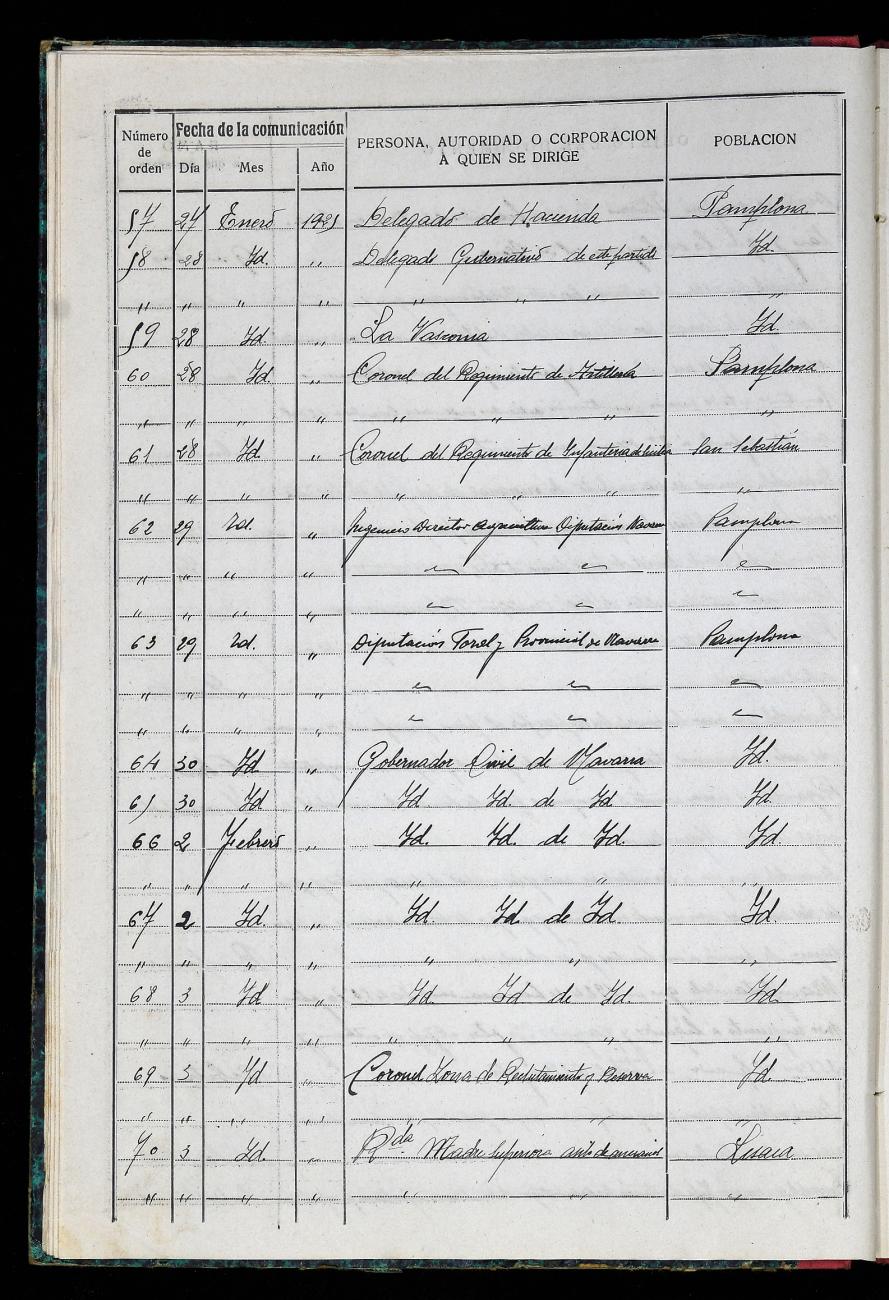 Número de orden | Fecha de la comunicación | PERSONA, AUTORIDAD O CORPORACION A QUIEN SE DIRIGE | POBLACION
Día | Mes | Año
57 27 Enero 1925 Delegado de Hacienda Pamplona
58 28 Id. " Delegado Gubernativo de este partido Id.
" " " " " " " "
59 28 Id. " La Vasconia Id.
60 28 Id. " Coronel del Regimiento de Artillería Pamplona
" " " " " " "
61 28 Id. " Coronel del Regimiento de Infantería de San Sebastián
" " " " " " " "
62 29 Id. " Ingeniero Director Agricultura Diputación Navarra Pamplona
" " " " " " "
" " " " " " "
63 29 Id. " Diputación Foral y Provincial de Navarra Pamplona
" " " " " " "
" " " " " " "
64 30 Id " Gobernador Civil de Navarra Id.
65 30 Id " Id Id. de Id Id.
66 2 Febrero " Id. Id. de Id. Id.
" " " " " " "
67 2 Id. " Id. Id de Id. Id.
" " " " " " "
68 3 Id " Id. Id de Id. Id.
" " " " " " " "
69 3 Id " Coronel Zona de Reclutamiento y Reserva Id.
" " " " " "
70 3 Id. " Rda. Madre Superiora de ancianos Lesaca
" " " " " " "